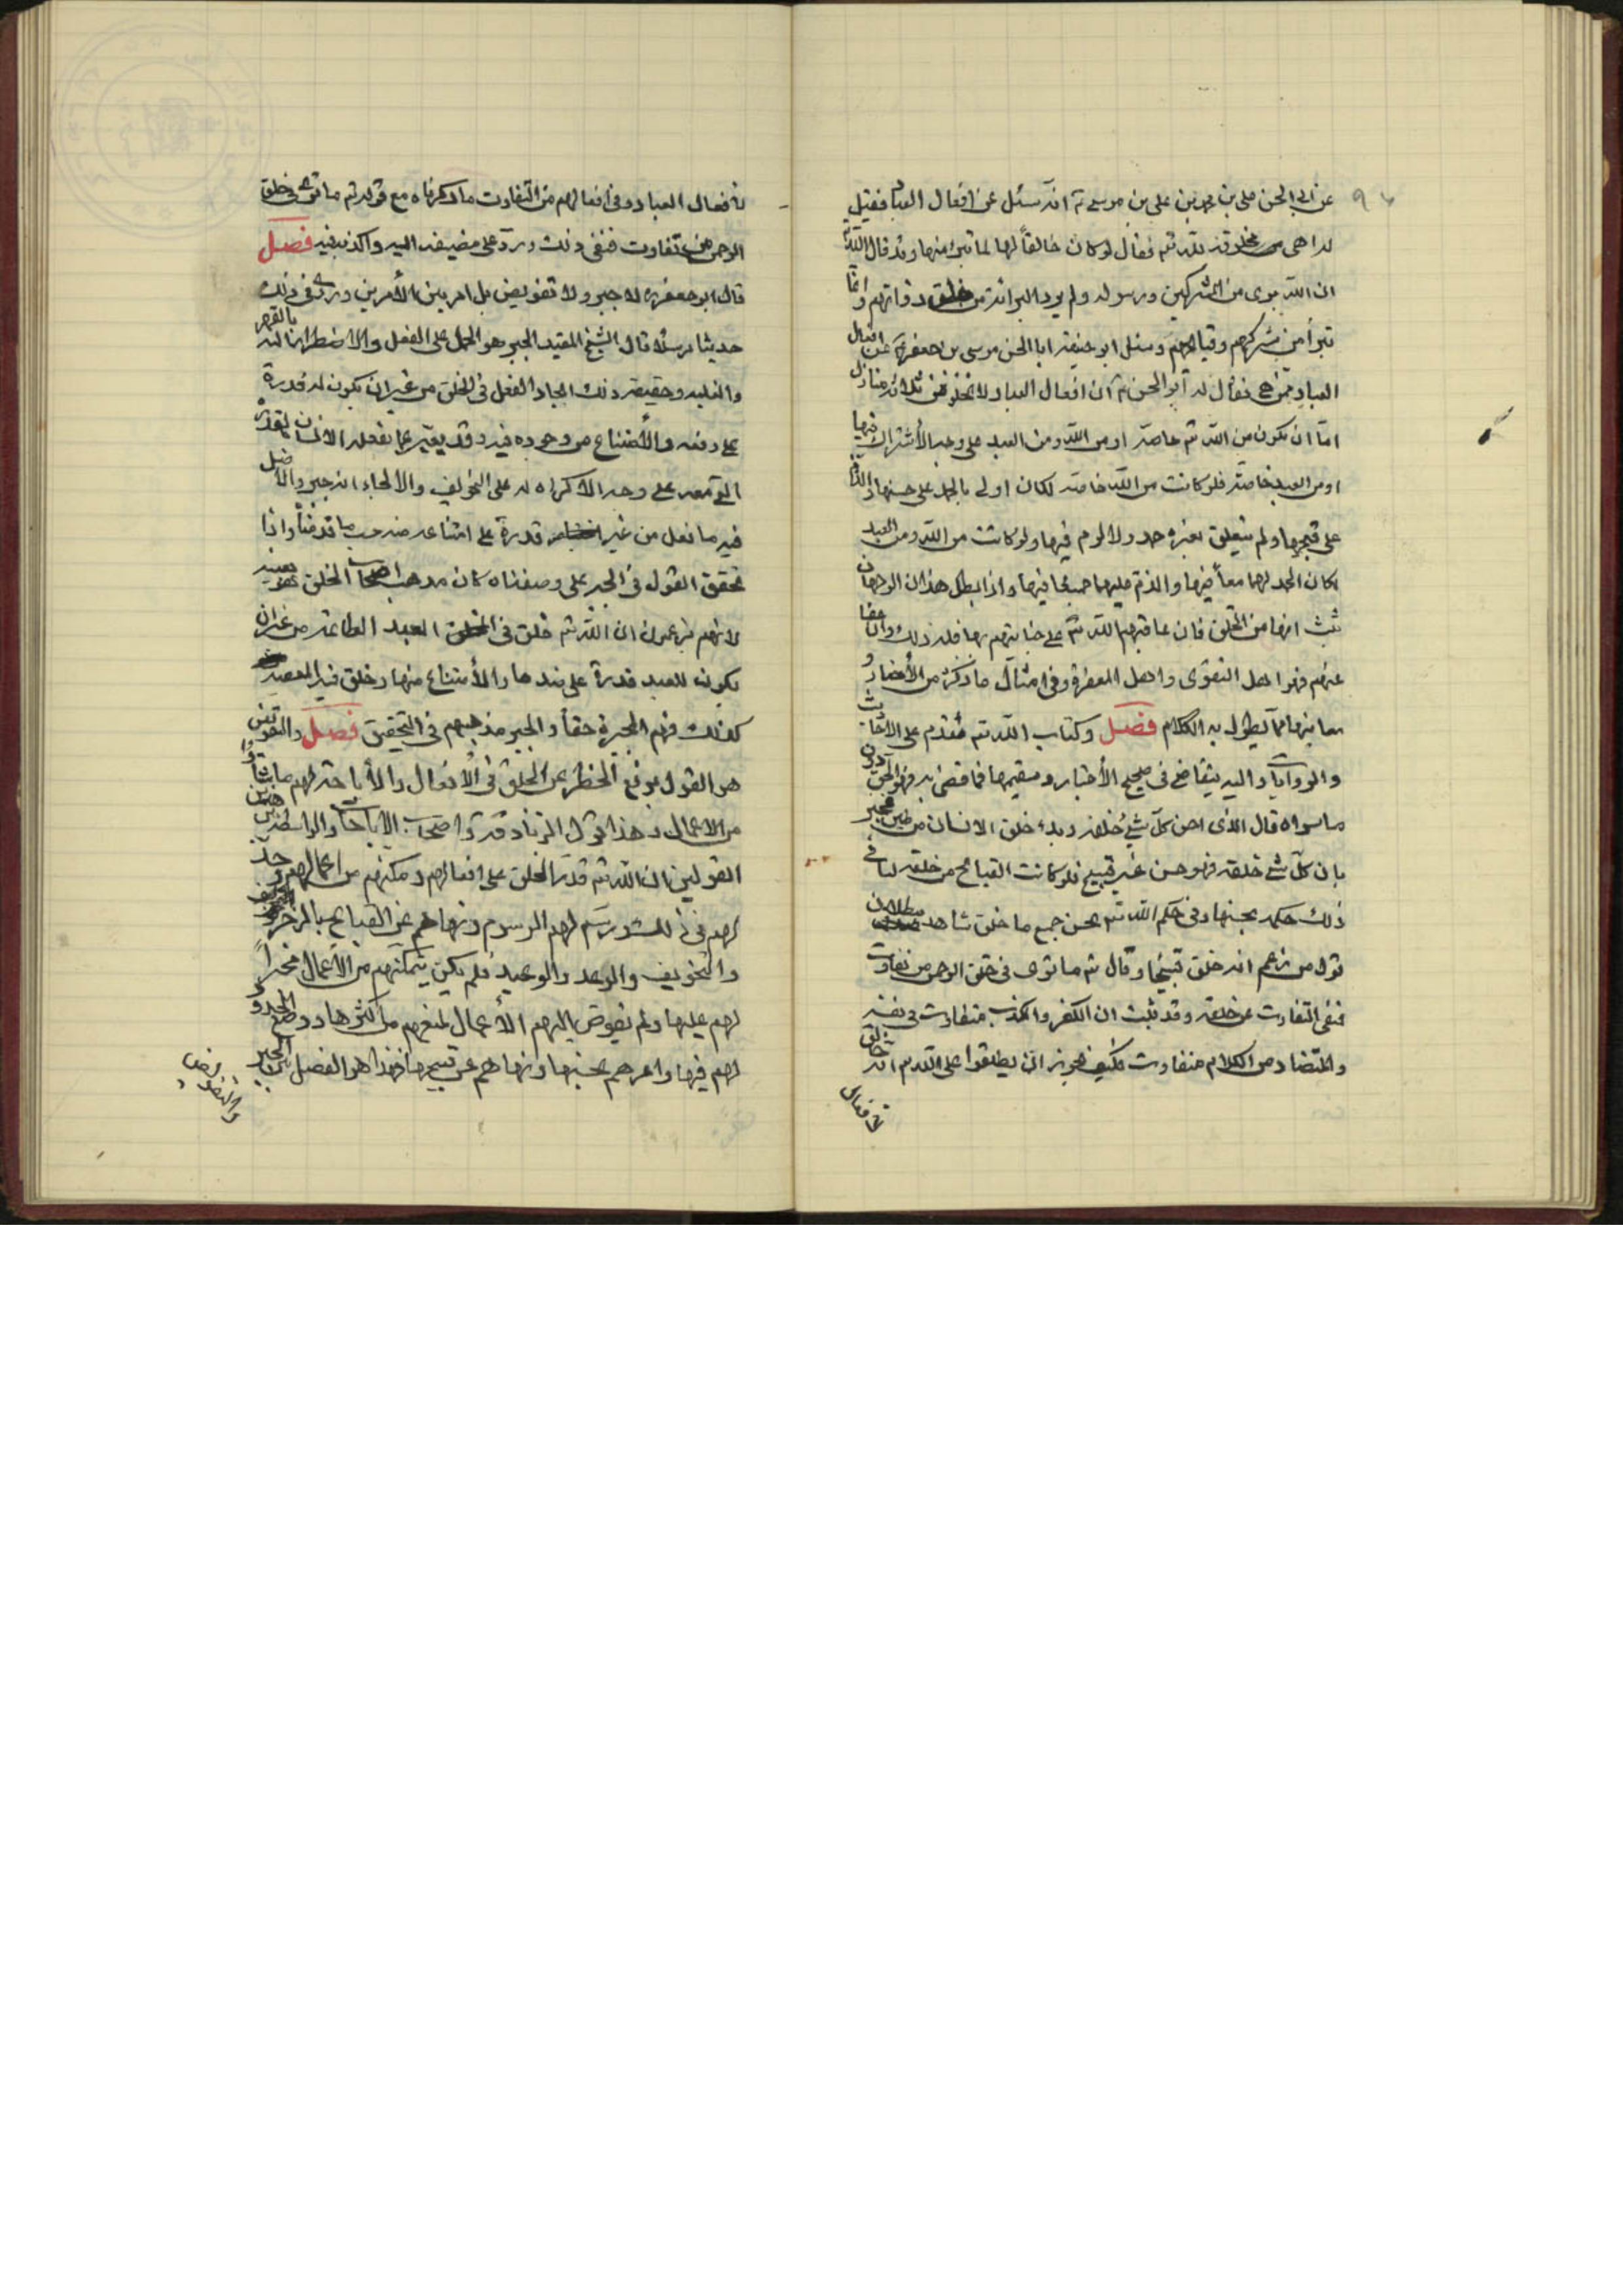 عن ابى الحسن على بن محمد بن على بن موسى ع انه سئل عن افعال العباد فقيل
له اهى مخلوقة لله تم فقال لو كان خالقاً لها لما تبرء منها وقد قال الله
ان الله برى من المشركين ورسوله ولم يرد البرائة من خلق ذواتهم وانما
تبرأ من شركهم وقبايحهم وسئل ابو حنيفة ابا الحسن موسى بن جعفر ع عن افعال
العباد ممن هى فقال له ابو الحسن ع ان افعال العباد لا تخلو من ثلاثة منازل
اما ان تكون من الله تم خاصة او من الله ومن العبد على وجه الأشتراك فيها
او من العبد خاصة فلو كانت من الله خاصة لكان اولى بالحمد على حسنها والذم
على قبحها ولم يتعلق بغيره حمد ولا لوم فيها ولو كانت من الله ومن العبد
لكان الحمد لهما معاً فيها والذم عليهما جميعا فيها واذا بطل هذان الوجهان
ثبت انها من الخلق فان عاقبهم الله تم على جنايتهم بها فله ذلك وان عفا
عنهم فهو اهل التقوى واهل المغفرة وفى امثال ما ذكرنا من الأخبار و
معانيها مما يطول به الكلام فصل وكتاب الله تم مقدم على الاحاديث
والروايات واليه يتقاضى فى صحيح الأخبار وسقيمها فما قضى به فهو الحق دون
ما سواه قال الذى احسن كل شئ خلقه وبدء خلق الانسان من طين فخبر
بان كل شئ خلقه فهو حسن غير قبيح فلو كانت القبايح من خلقه لنافى
ذلك حكمه بحسنها وفى حكم الله تم بحسن جميع ما خلق شاهد ببطلان
قول من زعم انه خلق قبيحا وقال تم ما ترى فى خلق الرحمن من تفاوت
فنفى التفاوت عن خلقه وقد ثبت ان الكفر والكذب متفاوت فى نفسه
والمتضاد من الكلام متفاوت فكيف يجوز ان يطلقوا على الله تم انه خالق
لأفعال العباد وفى افعالهم من التفاوت ما ذكرناه مع قوله تم ما ترى فى خلق
الرحمن من تفاوت فنفى ذلك ورد على مضيفه اليه واكذبه فيه فصل
قال ابو جعفر ره لا جبر ولا تفويض بل امر بين الأمرين وروى فى ذلك
حديثا مرسلا قال الشيخ المفيد الجبر هو الحمل على الفعل والاضطرار اليه بالقهر
والغلبه وحقيقة ذلك ايجاد الفعل فى الخلق من غير ان يكون له قدرة
على دفعه والأمتناع من وجوده فيه وقد يعبر عما يفعله الانسان بالقدرة
التى معه على وجه الاكراه له على التخويف والالجاء انه جبر والأصل
فيه ما فعل من غير قدرة على امتناعه منه حسب ما قدمناه واذا
تحقق القول فى الجبر على وصفناه كان مذهب اصحاب المخلوق هو بعينه
لانهم يزعمون ان الله تم خلق فى العبد الطاعة من غير ان
يكون للعبد قدرة على ضدها والأمتناع منها وخلق فيه المعصية
كذلك فهم المجبرة حقاً والجبر مذهبهم فى التحقيق فصل والتفويض
هو القول برفع الحظر عن الخلق فى الأفعال والأباحة لهم ما شاؤا
من الاعمال وهذا قول الزنادقة واصحاب الاباحات والواسطة بين هذين
القولين ان الله تم قدر الخلق على افعالهم ومكنهم من اعمالهم وحد
لهم فى ذلك ورسم لهم الرسوم ونهاهم عن القبايح بالزجر
والتخويف والوعد والوعيد فلم يكن بتمكينهم من الأعمال مجبراً
لهم عليها ولم يفوض اليهم الأعمال لمنعهم من اكثرها ووضع الحدود
لهم فيها وامرهم بحسنها ونهاهم عن قبيحها فهذا هو الفصل بين الجبر
والتفويض